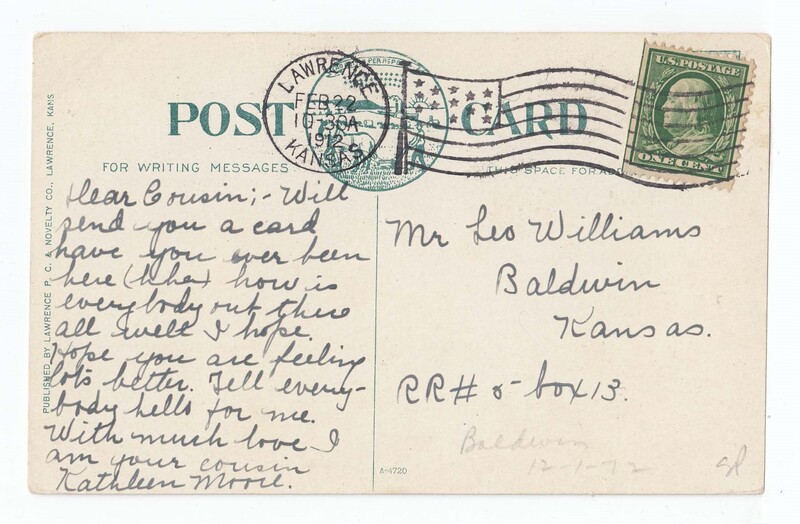 LAWRENCE
FEB 22
10-30A
1912
KANSAS
U.S. POSTAGE
ONE CENT
POST CARD
FOR WRITING MESSAGES
THIS SPACE FOR ADD
Dear Cousin;- Will
send you a card
have you ever been
here (haha) how is
everybody out there
all well I hope.
Hope you are feeling
lots better. Tell every-
body hello for me.
With much love I
am your cousin
Kathleen Moore.
Mr Leo Williams
Baldwin
Kansas.
RR# 5- box 13.
Baldwin
12-1-72
A-4720
PUBLISHED BY LAWRENCE P. C. & NOVELTY CO., LAWRENCE, KANS